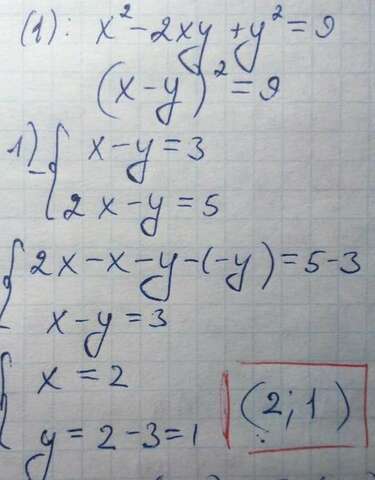 (1): x² - 2xy + y² = 9
(x - y)² = 9
1) { x - y = 3
2x - y = 5
{ 2x - x - y - (-y) = 5 - 3
x - y = 3
{ x = 2
y = 2 - 3 = 1
(2; 1)